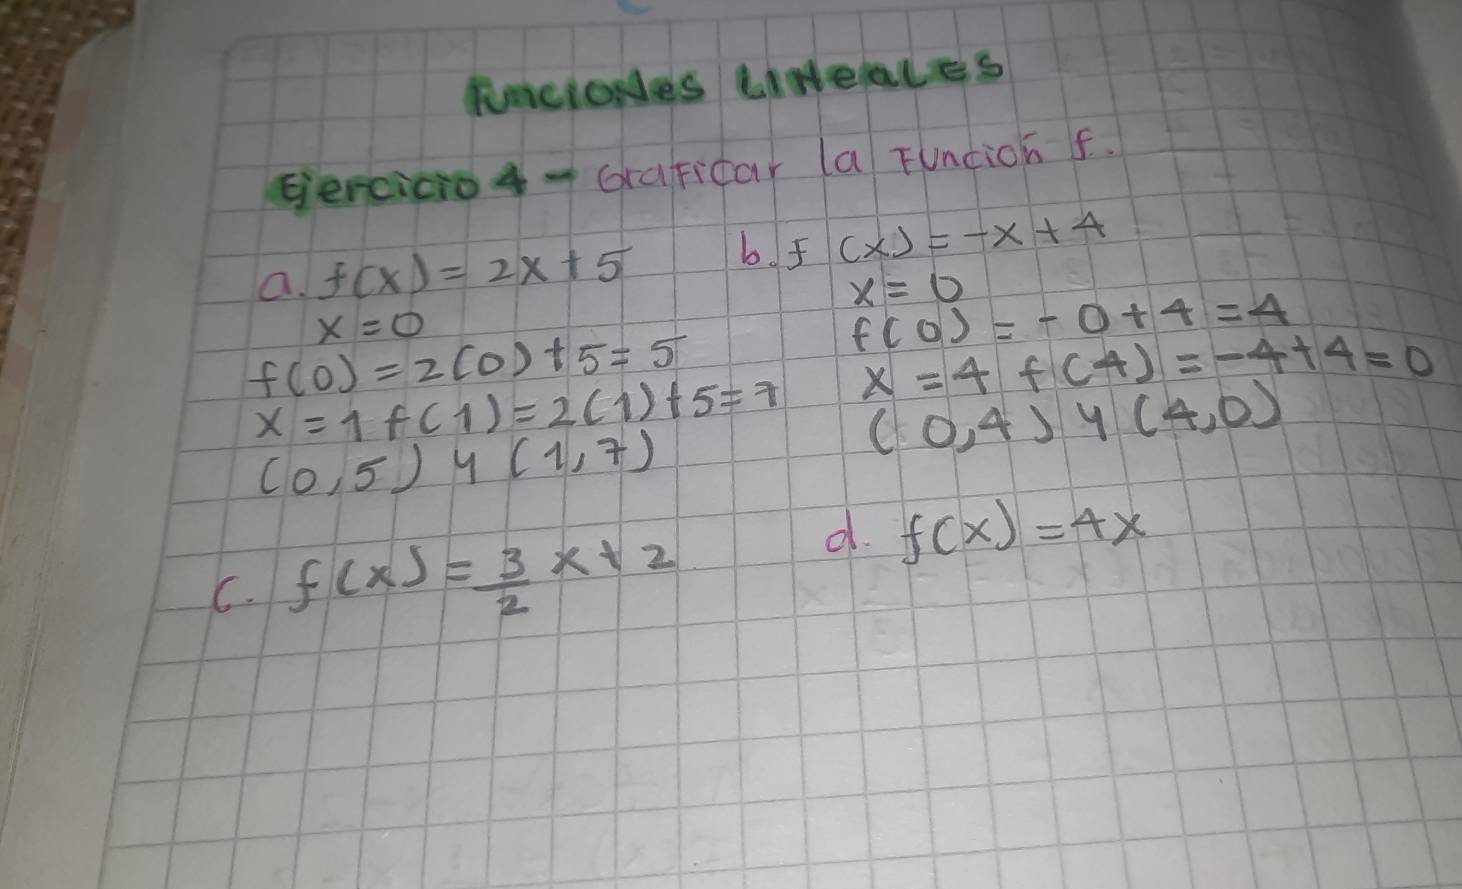 Funciones Lineales
Ejercicio 4 - Graficar la Función f.
a. f(x) = 2x + 5
x = 0
f(0) = 2(0) + 5 = 5
x = 1 f(1) = 2(1) + 5 = 7
(0,5) y (1,7)
b. f (x) = -x + 4
x = 0
f(0) = - 0 + 4 = 4
x = 4 f(4) = -4 + 4 = 0
(0,4) y (4,0)
c. f(x) = 3/2 x + 2
d. f(x) = 4x